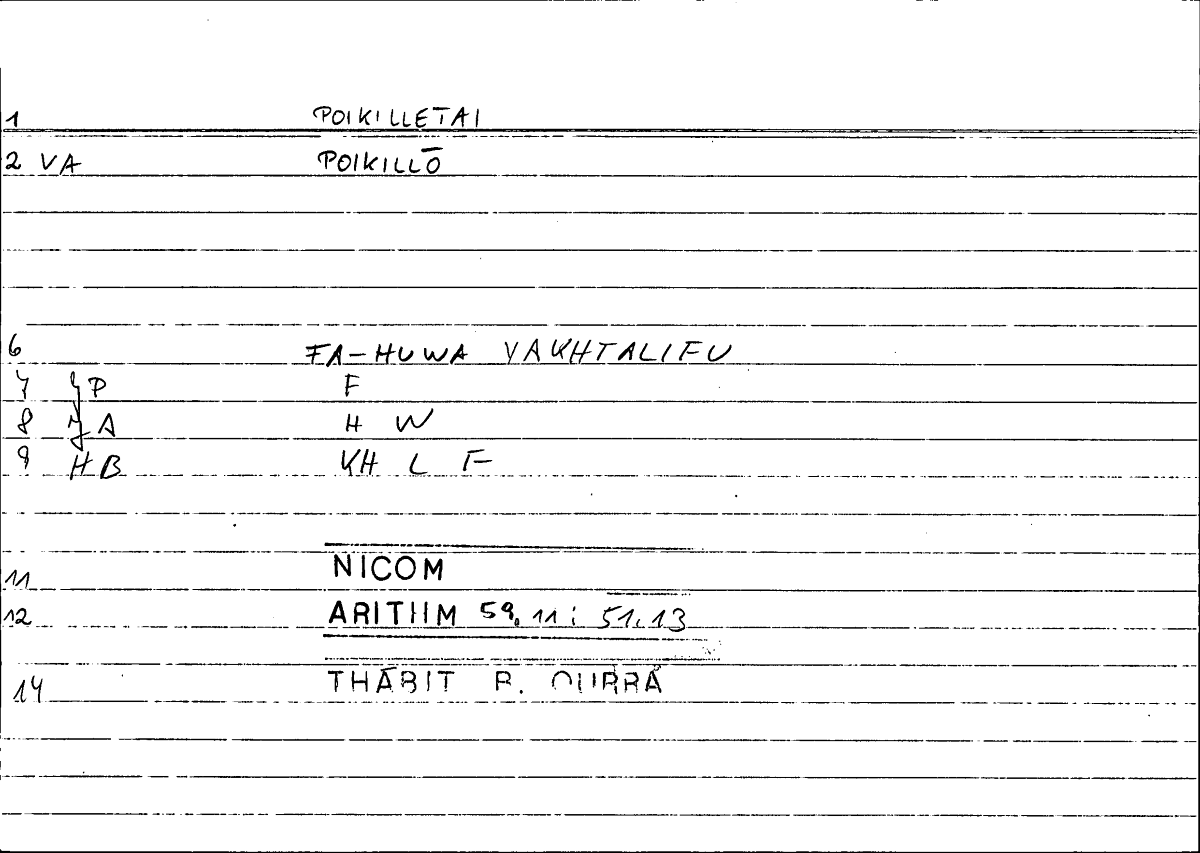 1 POIKILLETAI
2 VA POIKILLŌ
6 FA-HUWA YAKHTALIFU
7 P F
8 A H W
9 HB KH L F
11 NICOM
12 ARITHM 59.11 : 51.13
14 THĀBIT B. QURRA